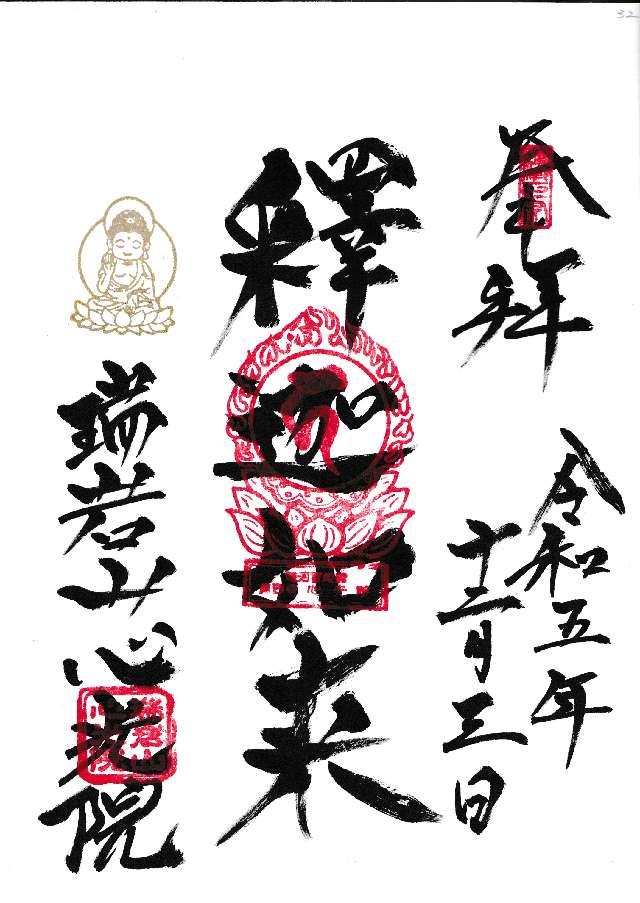 32
奉拝
令和五年
十二月三日
釋迦如来
瑞岩山心光院